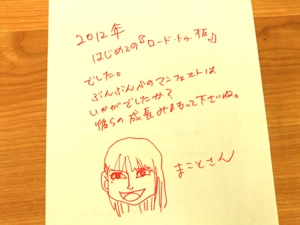 2012年
はじめての『ロード・トゥ・板』
でした。
ぶんぶんのマニフェストは
いかがでしたか?
らの成長みまもって下さいね。
まことさん